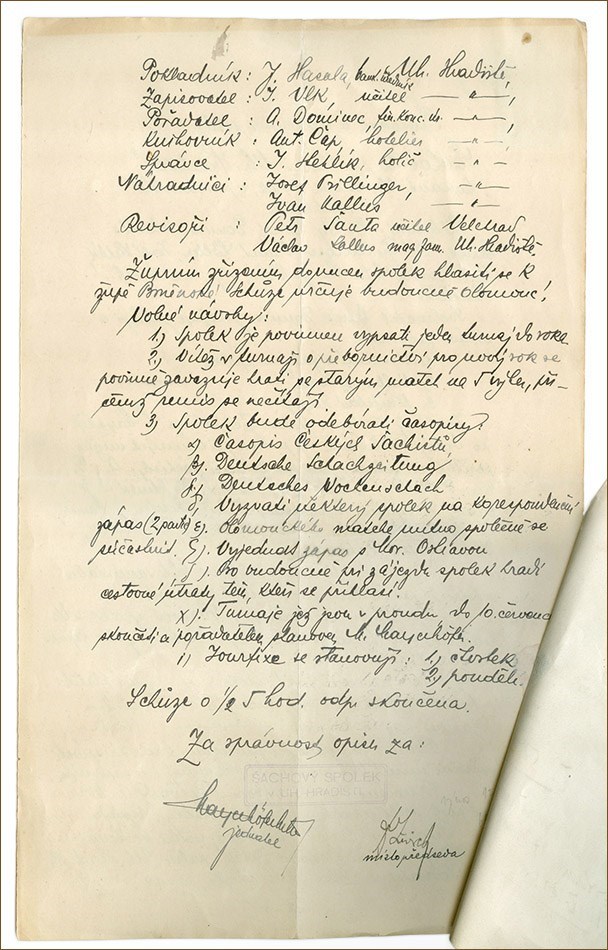 Pokladník : J. Hasala, bank. úředník Uh. Hradiště,
Zapisovatel : J. Vlk, učitel — " —,
Pořadatel : A. Dominec fin. konc. — " —,
Knihovník : Ant. Čáp, hotelier — " —
Správce : J. Heblík, holič — " —
Náhradníci : Josef Prillinger, — " —
Ivan Kallus — " —
Revisoři : Petr Šanta učitel Velehrad
Václav Kallus mag. farm. Uh. Hradiště.
Župním zřízením donucen spolek hlásiti se k
župě Brněnské schůze určuje budoucně Olomouc!
Volné návrhy:
1.) Spolek je povinnen vypsati jeden turnaj do roka
2.) Vítěz v turnaji o přebornictví pro nový rok se
povinně zavazuje hráti se starým match na 5 výher, při-
čemž remis se nečítají
3) Spolek bude odebírati časopisy:
α) Časopis Českých Šachistů
β). Deutsche Schachzeitung
γ). Deutsches Wochenschach
δ) Vyzvati některý spolek na korespondenční
zápas (2 partie) ε). Olomouckého matche nutno společně se
súčastnit. ζ). Vyjednat zápas s Mor. Ostravou
Pro budoucně při zájezdu spolek hradí
cestovné útraty těm, kteří se přihlásí.
χ). Turnaje jež jsou v proudu do 10. června
skončiti a pořadatelem stanoven
i) Jourfixe se stanovují : 1.) čtvrtek
2.) pondělí.
Schůze o ½ 5 hod. odp. skončena.
Za správnost opisu za:
ŠACHOVÝ SPOLEK
V UH. HRADIŠTI
jednatel
místopředseda